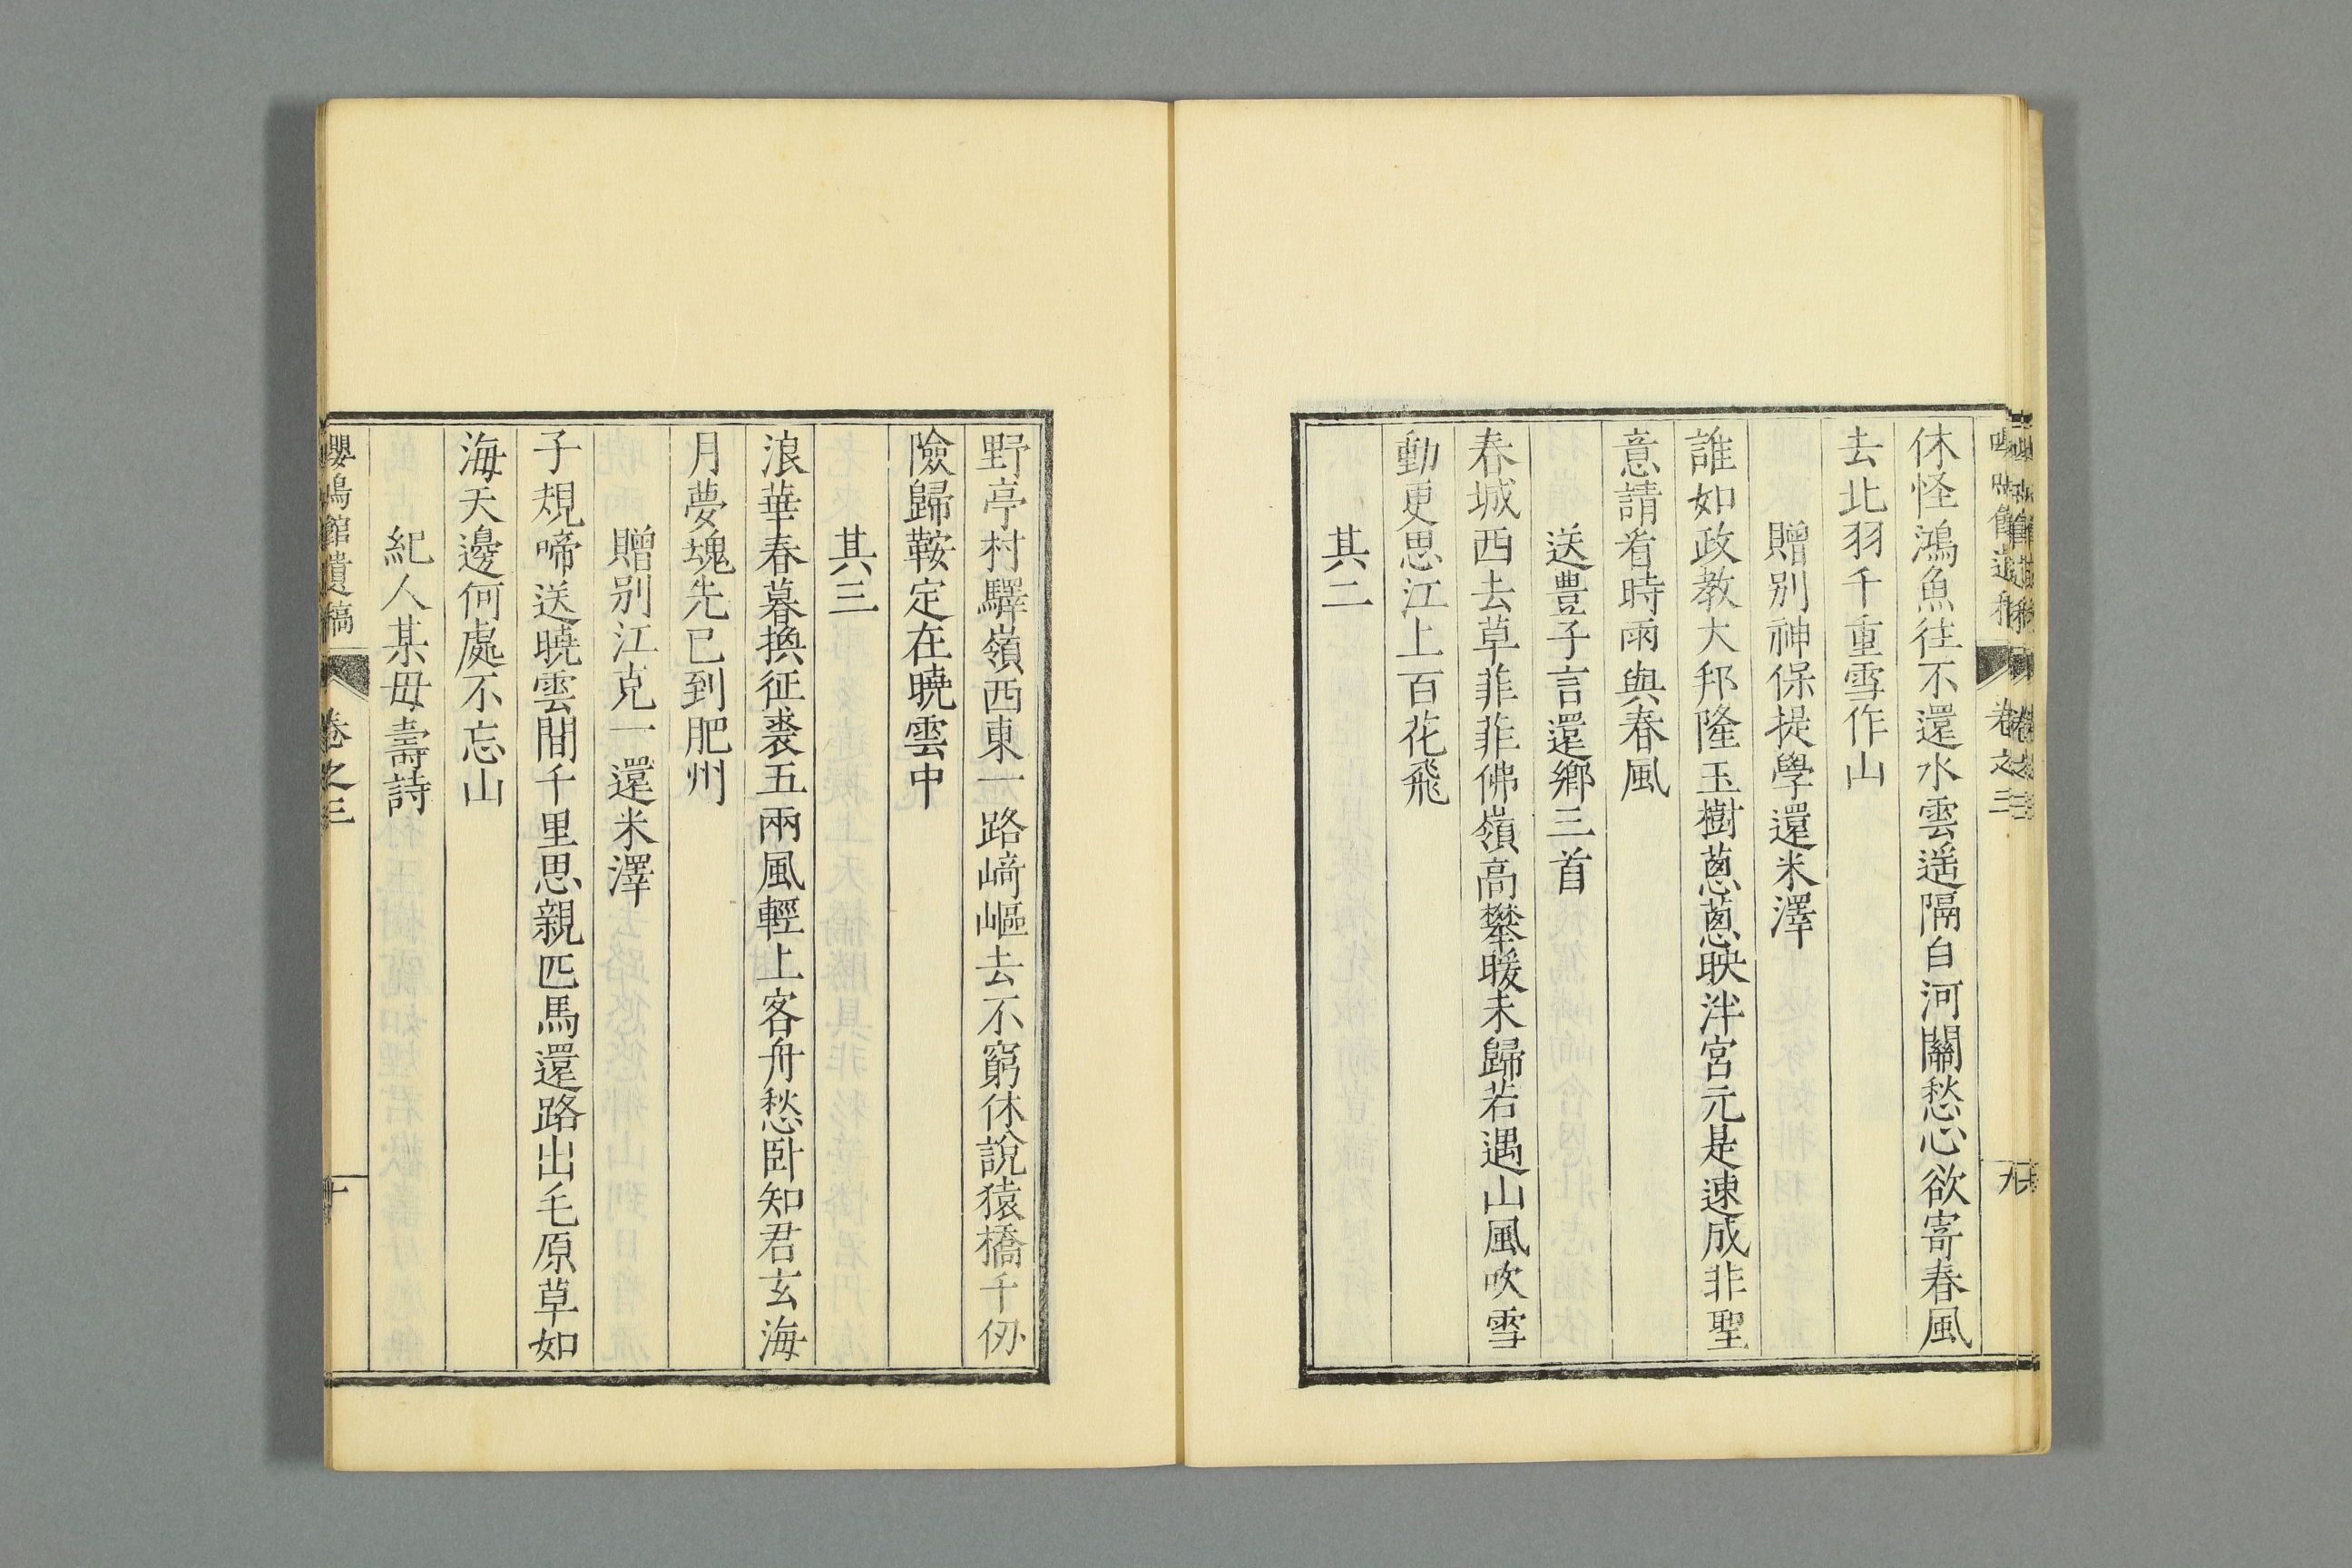 休怪鴻魚往不還水雲遥隔白河關愁心欲寄春風
去北羽千重雪作山
贈別神保提學還米澤
誰如政教大邦隆玉樹蔥蔥映泮宮元是速成非聖
意請看時雨與春風
送豊子言還鄉三首
春城西去草菲菲佛嶺高攀暖未歸若遇山風吹雪
動更思江上百花飛
其二
野亭村驛嶺西東一路﨑嶇去不窮休說猿橋千仞
險歸鞍定在曉雲中
其三
浪華春暮換征裘五兩風輕上客舟愁卧知君玄海
月夢塊先已到肥州
贈別江克一還米澤
子規啼送曉雲間千里思親匹馬還路出毛原草如
海天邊何處不忘山
紀人某毋壽詩
嚶鳴館遺稿 卷之三 十